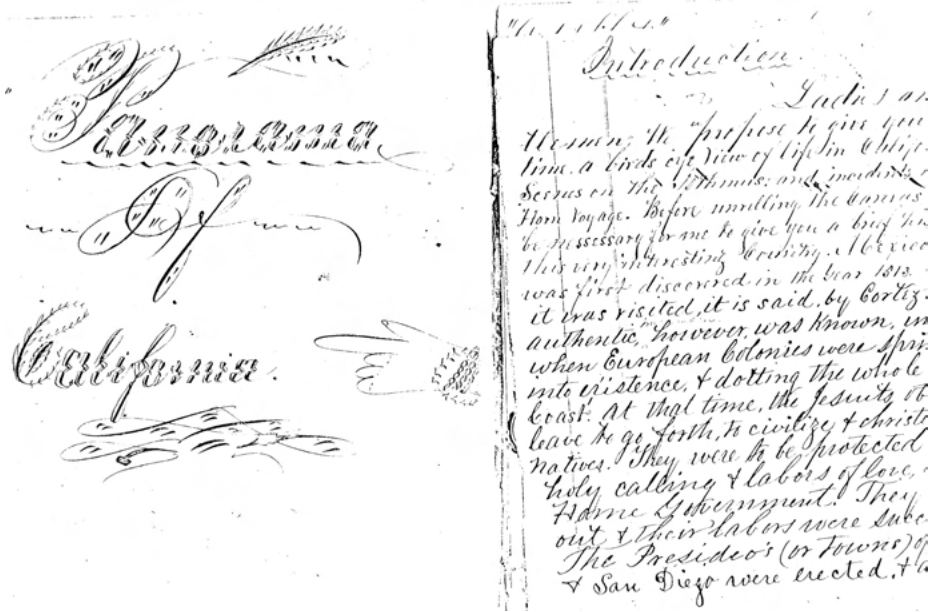 Panorama
Of
California.
Introduction.
Ladies an
tlemen; We propose to give you
time, a birds eye view of life in Califo
Scenes on the Isthmus; and incidents
Horn Voyage. Before unrolling the Canvas
be nessessary for me to give you a brief
this very interesting Country. Mexico
was first discovered in the Year
it was visited, it is said, by Cortez.
authentic, however, was known,
when European Colonies were spri
into existence, & dotting the whole
Coast. At that time, the Jesuits ob
leave to go forth, to civilize & christ
natives. They were to be protected
holy calling & labors of love,
Home Government. They
out & their labors were succ
The Presidio's (or Towns) of
& San Diego were erected, & a